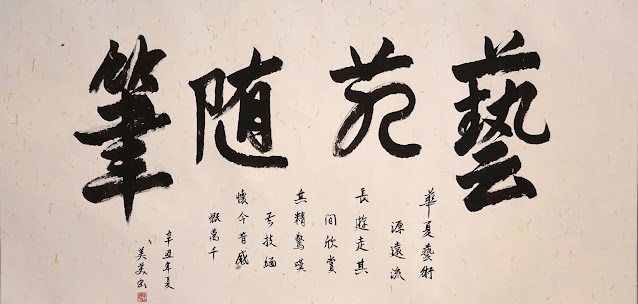 藝苑随筆
華夏藝術
源遠流
長遊走其
間欣賞
其精驚嘆
其技緬
懷今昔感
慨萬千
辛丑年夏
美英书